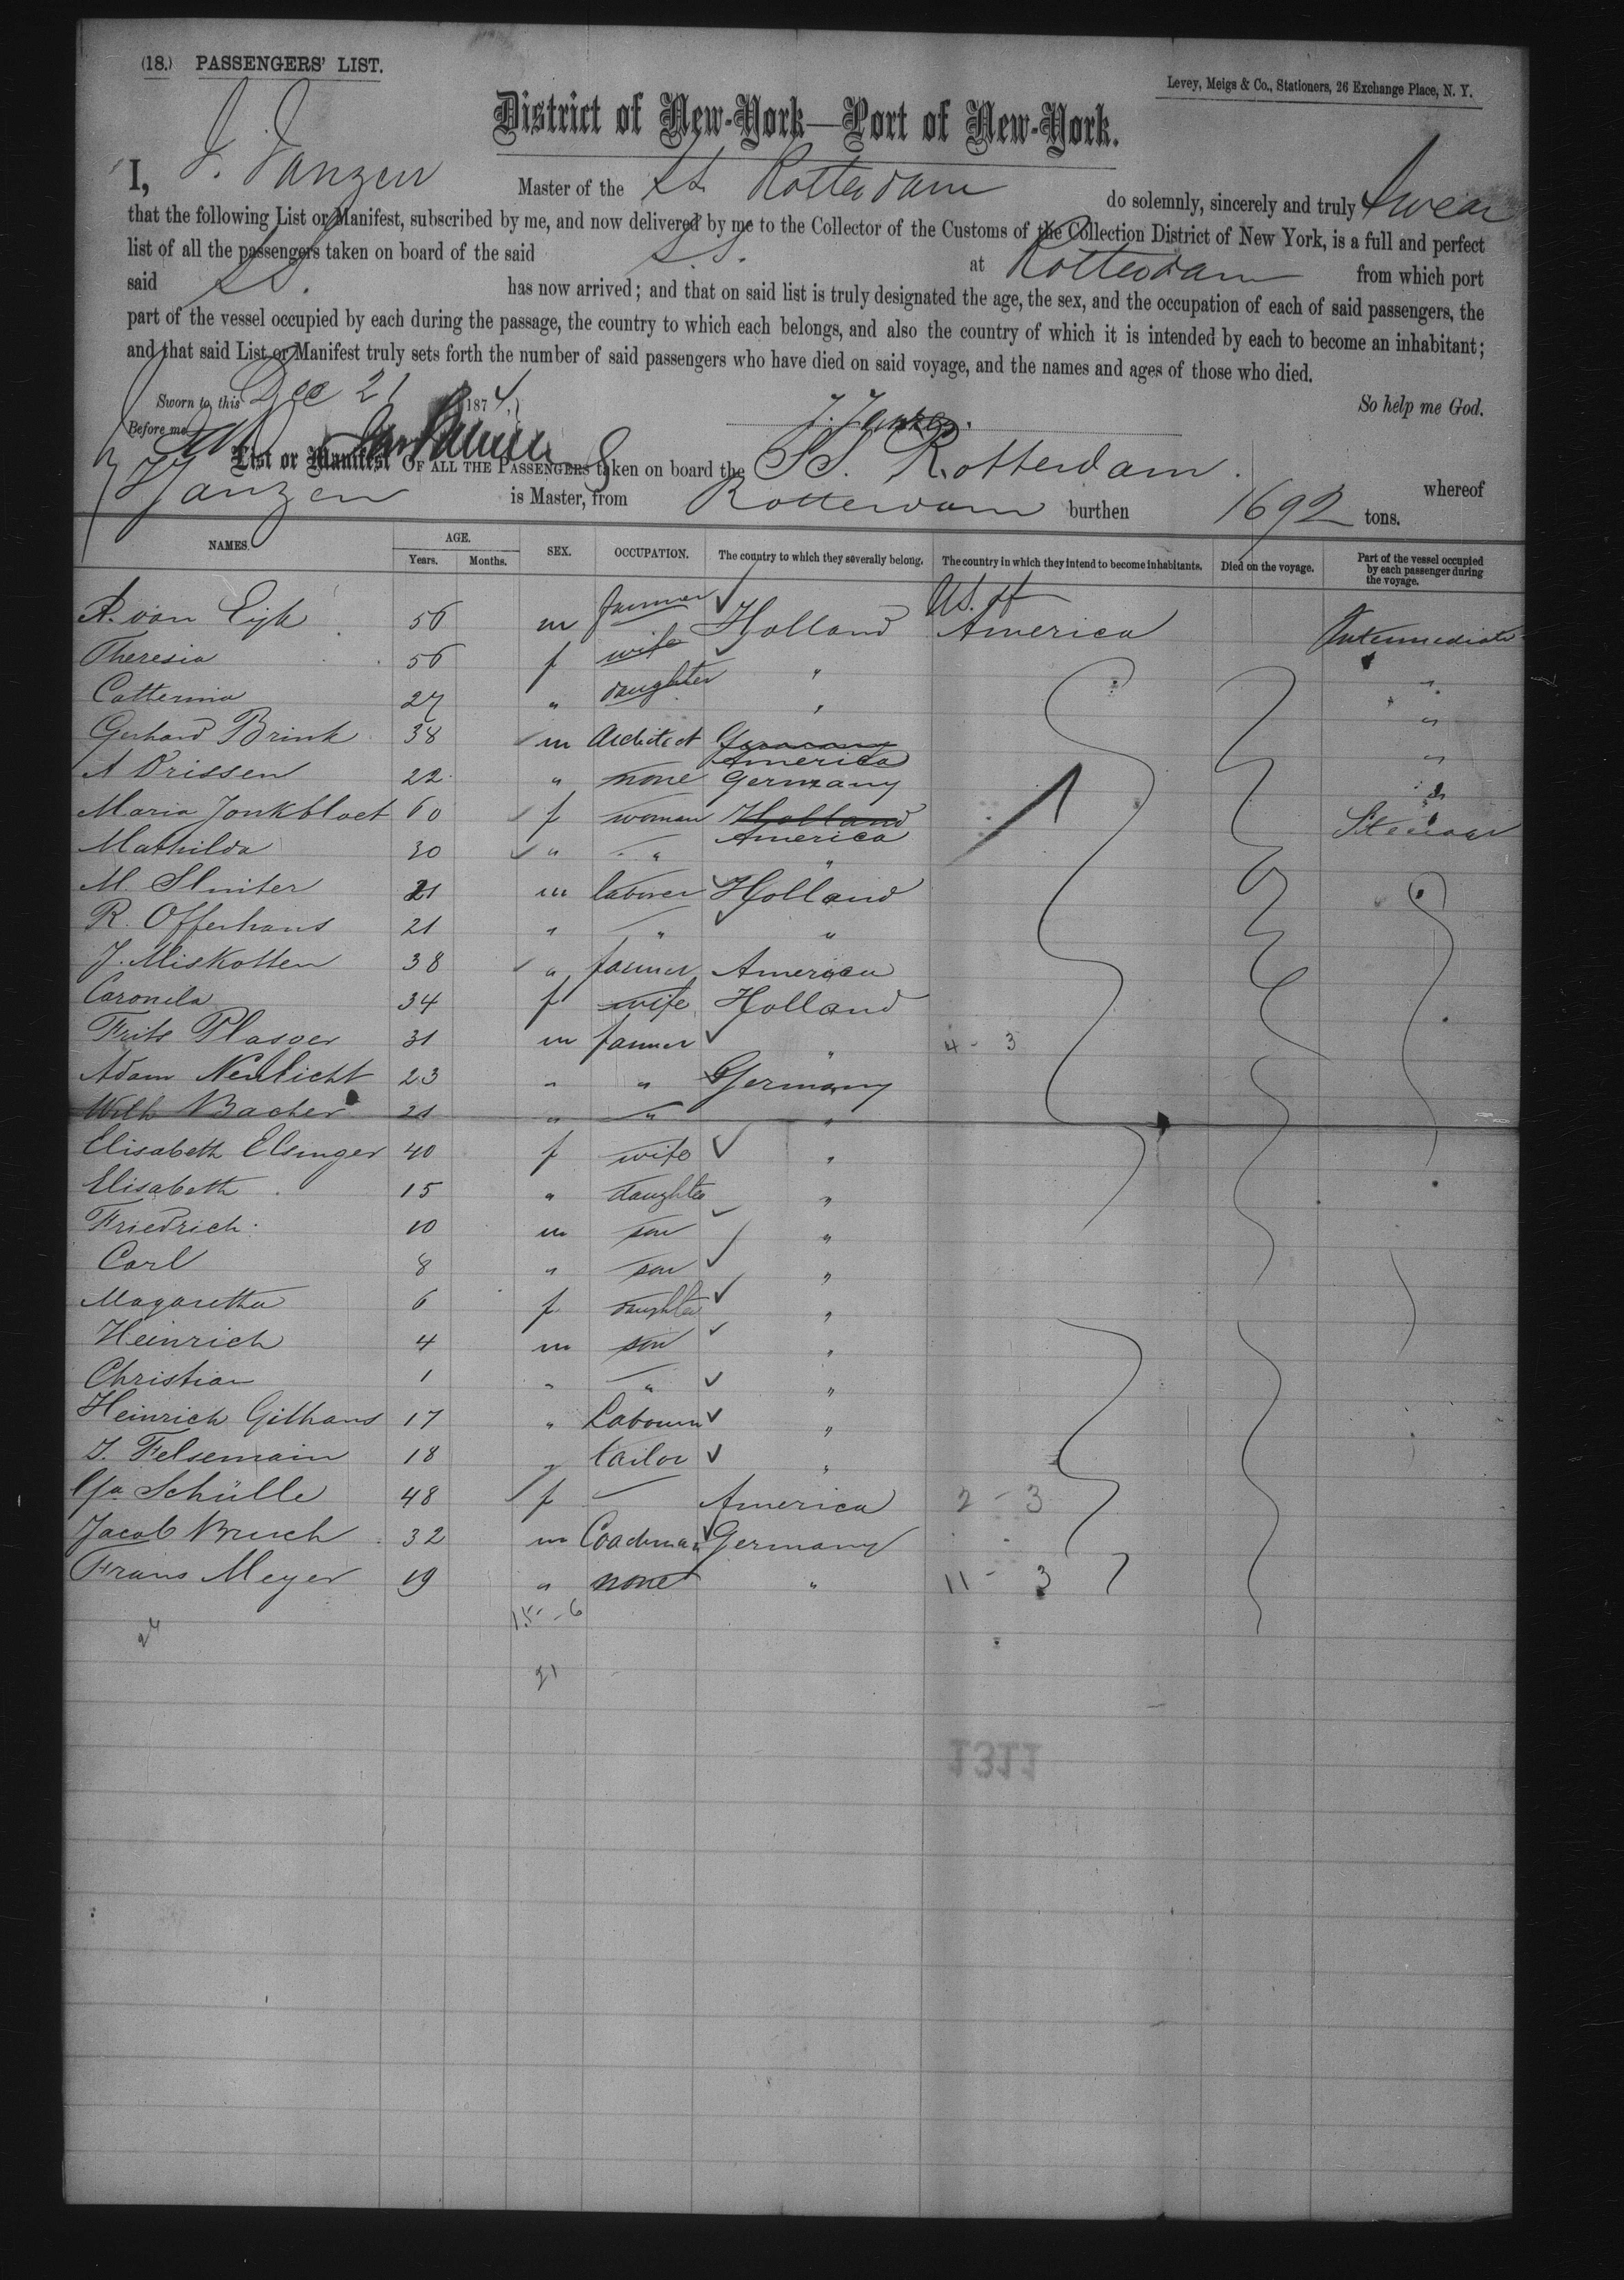 (18.) PASSENGERS' LIST.
Levey, Meigs & Co., Stationers, 26 Exchange Place, N. Y.
District of New-York—Port of New-York.
I, J. Janzen Master of the S.S. Rotterdam do solemnly, sincerely and truly Swear
that the following List or Manifest, subscribed by me, and now delivered by me to the Collector of the Customs of the Collection District of New York, is a full and perfect
list of all the passengers taken on board of the said S.S. at Rotterdam from which port
said S.S. has now arrived; and that on said list is truly designated the age, the sex, and the occupation of each of said passengers, the
part of the vessel occupied by each during the passage, the country to which each belongs, and also the country of which it is intended by each to become an inhabitant;
and that said List or Manifest truly sets forth the number of said passengers who have died on said voyage, and the names and ages of those who died.
Sworn to this Dec 21 1874, So help me God.
Before me J. Janzen.
List or Manifest OF ALL THE PASSENGERS taken on board the SS. Rotterdam. whereof
J Janzen is Master, from Rotterdam burthen 1692 tons.
NAMES. AGE. Years. Months. SEX. OCCUPATION. The country to which they severally belong. The country in which they intend to become inhabitants. Died on the voyage. Part of the vessel occupied by each passenger during the voyage.
A. van Eyk 56 m farmer Holland U.S. of America Intermediate
Theresia 56 f wife " "
Catterina 27 " daughter " "
Gerhard Brink 38 m Architect Germany America "
A Drissen 22 " none Germany "
Maria Jonkbloet 60 f woman Holland America Steerage
Mathilda 30 " " "
M. Sluiter 21 m laborer Holland
R. Offerhaus 21 " " "
J. Miskotten 38 " farmer America
Caronela 34 f wife Holland
Frits Plasger 31 m farmer " 4 - 3
Adam Neulicht 23 " " Germany
Wilh Bacher 21 " " "
Elisabeth Elsinger 40 f wife "
Elisabeth 15 " daughter "
Friedrich 10 m son "
Carl 8 " son "
Magaretha 6 f daughter "
Heinrich 4 m son "
Christian 1 " " "
Heinrich Gilhaus 17 " Labourer "
J. Felsemain 18 " tailor "
Schülle 48 f America 2 - 3
Jacob Bruch 32 m Coachman Germany
Frans Meyer 19 " none " 11 - 3
15 - 6
21
1311